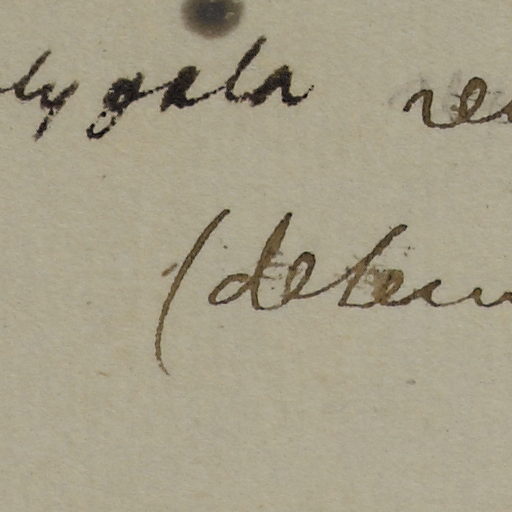 lygala re
(determ